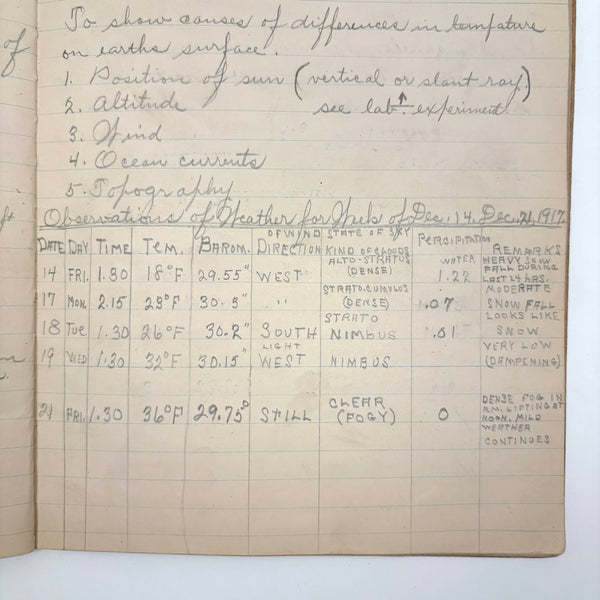 of
To show causes of differences in tempature
on earths surface.
1. Position of sun (vertical or slant ray.)
2. Altitude see lab. experiment.
3. Wind
4. Ocean currents
5. Topography
Observations of Weather for Week of Dec. 14. Dec. 21, 1917.
DATE DAY TIME TEM. BAROM. DIRECTION OF WIND STATE OF SKY KIND OF CLOUDS PERCIPITATION REMARKS
14 FRI. 1.30 18°F 29.55" WEST ALTO-STRATUS (DENSE) WATER 1.22 HEAVY SNOW FALL DURING LAST 24 HRS.
17 MON 2.15 23°F 30.3" " STRATO-CUMULUS (DENSE) .07 MODERATE SNOW FALL
18 TUE 1.30 26°F 30.2" SOUTH STRATO NIMBUS .01 LOOKS LIKE SNOW
19 WED 1:30 32°F 30.15" LIGHT WEST NIMBUS VERY LOW (DAMPENING)
21 FRI. 1.30 36°F 29.75" STILL CLEAR (FOGY) 0 DENSE FOG IN A.M. LIFTING AT NOON. MILD WEATHER CONTINUES